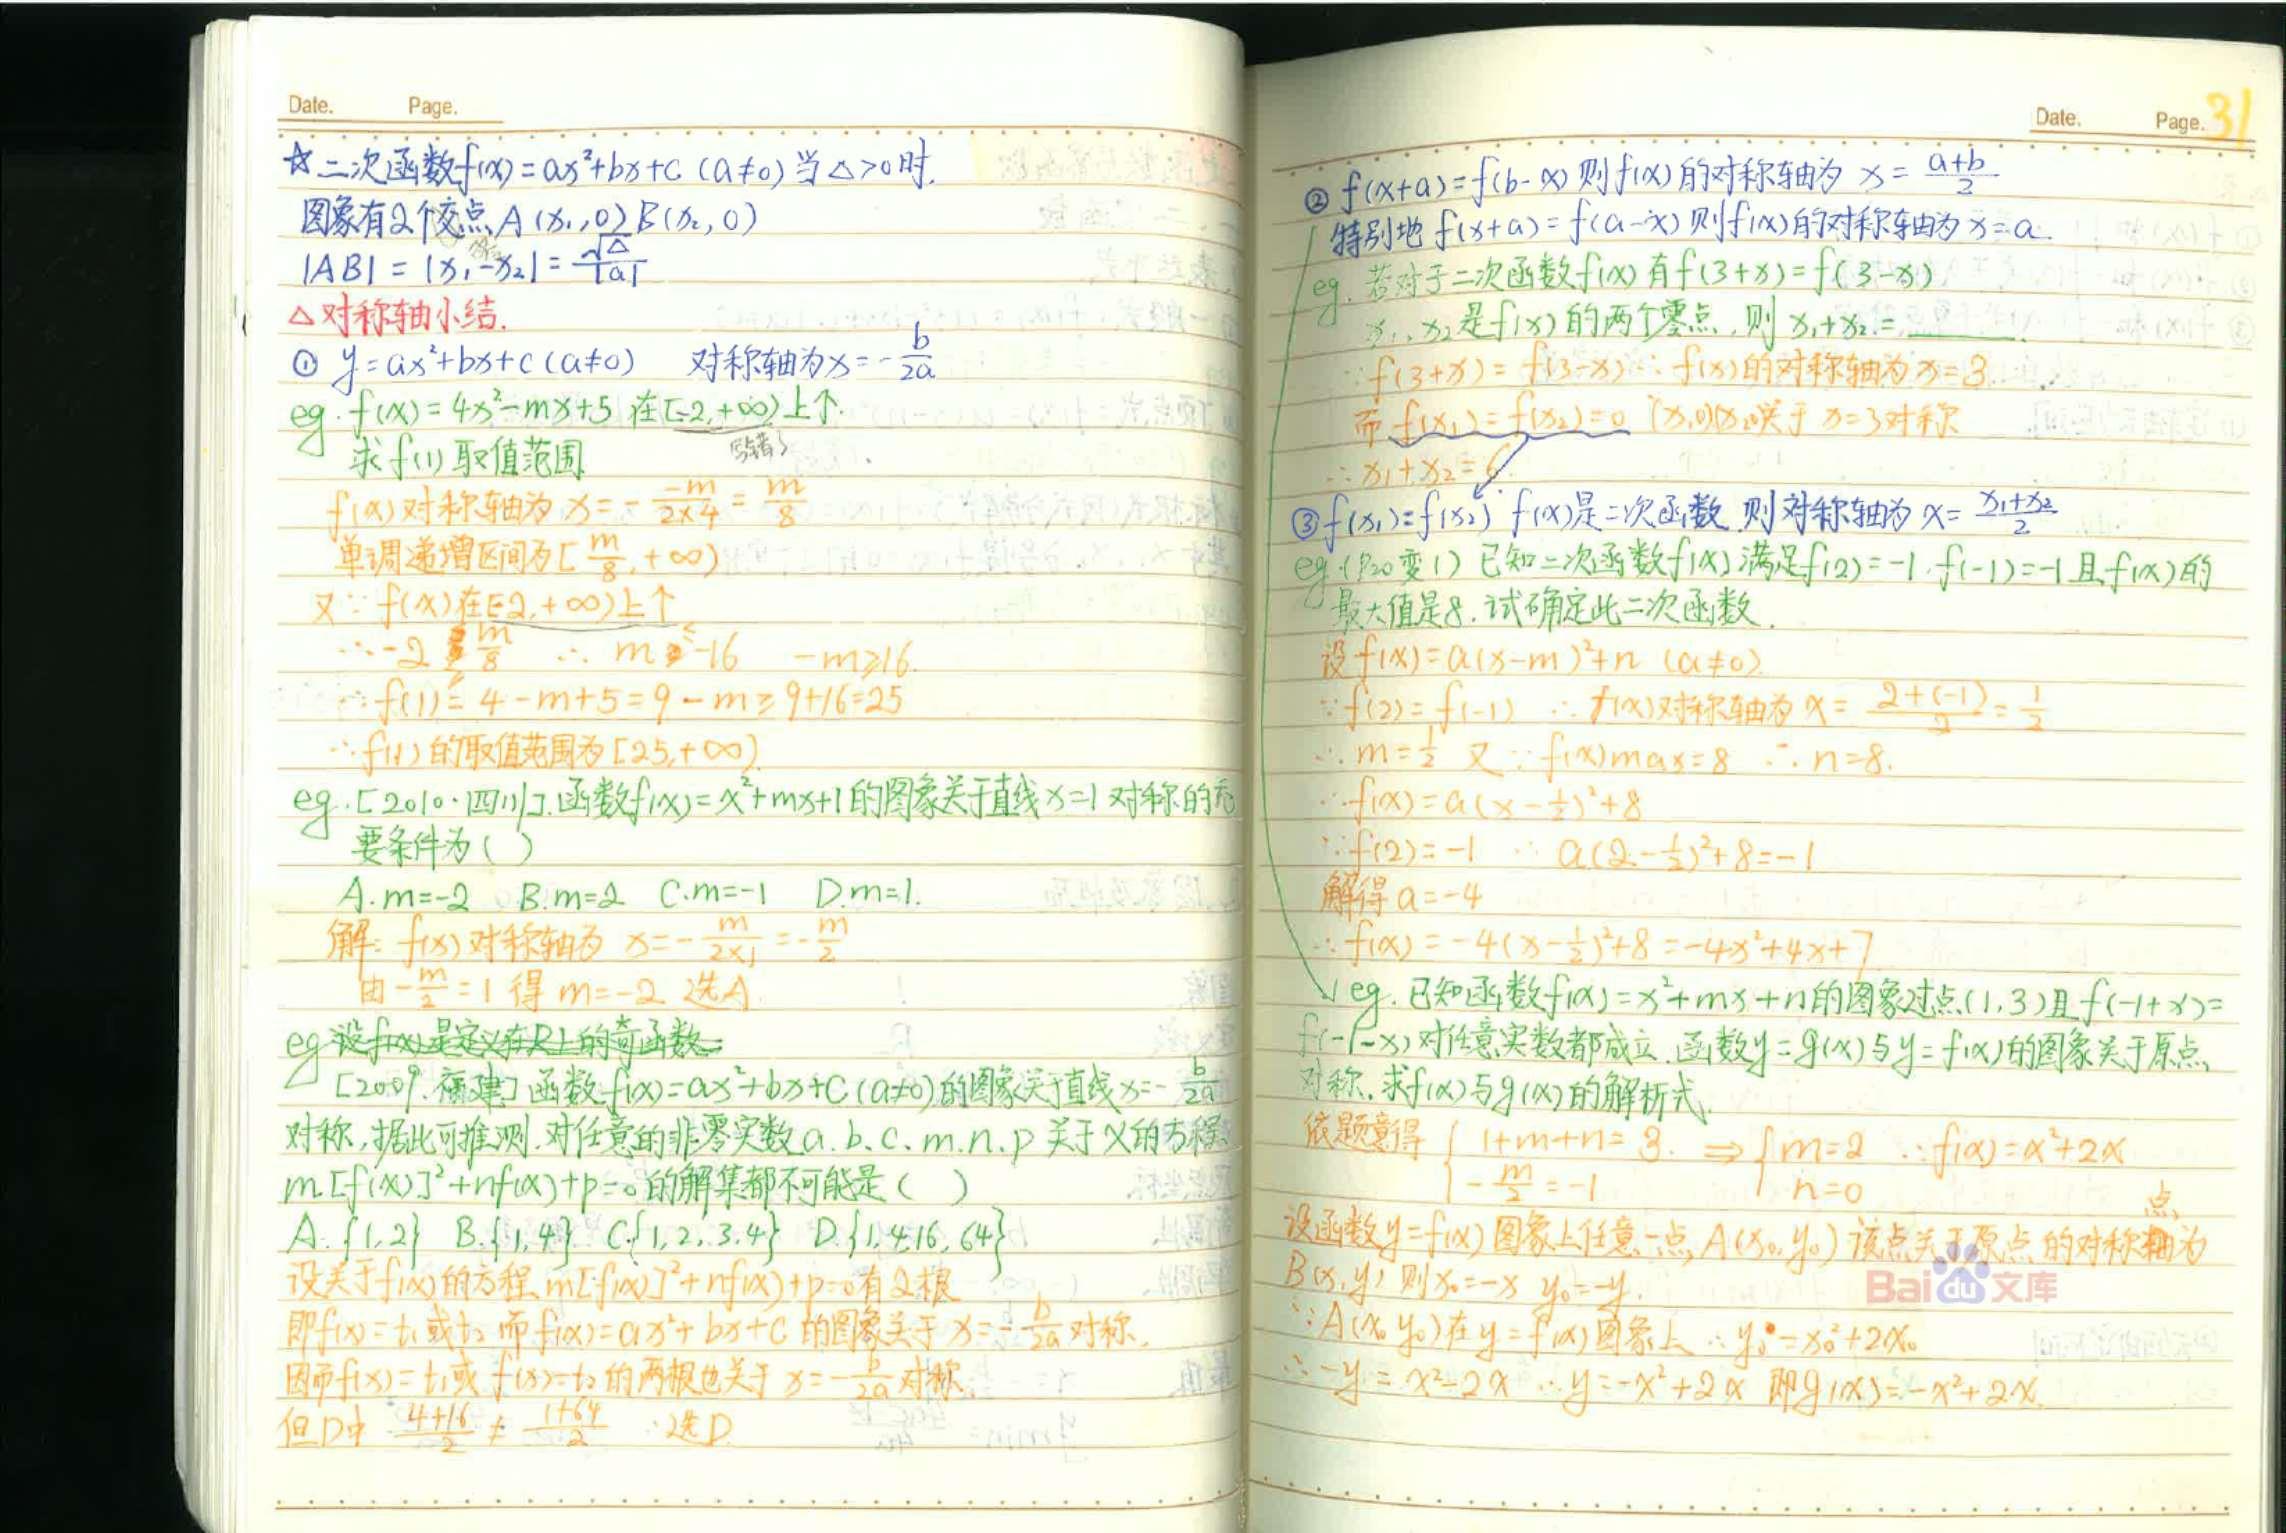 Date. Page.
☆二次函数f(x)=ax²+bx+c (a≠0) 当△>0时.
图象有2个交点A(x₁,0) B(x₂,0)
|AB|=|x₁-x₂|=√△/|a|
△对称轴小结.
① y=ax²+bx+c (a≠0) 对称轴为x=-b/2a
eg. f(x)=4x²-mx+5 在[-2,+∞)上↑.
求f(1)取值范围
f(x)对称轴为 x=-(-m)/(2×4)=m/8
单调递增区间为[m/8,+∞)
又∵f(x)在[-2,+∞)上↑
∴-2≥m/8 ∴m≤-16 -m≥16.
∴f(1)=4-m+5=9-m≥9+16=25
∴f(1)的取值范围为[25,+∞)
eg.[2010·四川].函数f(x)=x²+mx+1的图象关于直线x=1对称的充
要条件为( )
A.m=-2 B.m=2 C.m=-1 D.m=1.
解: f(x)对称轴为 x=-m/(2×1)=-m/2
由-m/2=1 得 m=-2 选A.
eg 设f(x)是定义在R上的奇函数=
[2009.福建] 函数f(x)=ax²+bx+c (a≠0)的图象关于直线x=-b/2a
对称,据此可推测.对任意的非零实数a.b.c.m.n.p 关于x的方程
m[f(x)]²+nf(x)+p=0的解集都不可能是( )
A.{1,2} B.{1,4} C.{1,2,3,4} D.{1,4,16,64}
设关于f(x)的方程m[f(x)]²+nf(x)+p=0有2根
即f(x)=t₁或t₂ 而f(x)=ax²+bx+c 的图象关于 x=-b/2a对称.
因而f(x)=t₁或f(x)=t₂的两根也关于 x=-b/2a对称
但D中 (4+16)/2≠(1+64)/2 ∴选D.
Date. Page. 31
② f(x+a)=f(b-x)则f(x)的对称轴为 x=(a+b)/2
特别地 f(x+a)=f(a-x)则f(x)的对称轴为x=a.
eg. 若对于二次函数f(x)有f(3+x)=f(3-x)
x₁、x₂是f(x)的两个零点,则 x₁+x₂=______.
∵f(3+x)=f(3-x)∴f(x)的对称轴为x=3.
而f(x₁)=f(x₂)=0 (x₁0)(x₂0)关于 x=3对称
∴x₁+x₂=6
③f(x₁)=f(x₂) f(x)是二次函数,则对称轴为x=(x₁+x₂)/2
eg.(P20变1) 已知二次函数f(x)满足f(2)=-1.f(-1)=-1且f(x)的
最大值是8.试确定此二次函数.
设f(x)=a(x-m)²+n (a≠0).
∵f(2)=f(-1) ∴f(x)对称轴为x=(2+(-1))/2=1/2
∴m=1/2 又∵f(x)max=8 ∴n=8.
∴f(x)=a(x-1/2)²+8
∵f(2)=-1 ∴a(2-1/2)²+8=-1
解得a=-4
∴f(x)=-4(x-1/2)²+8=-4x²+4x+7
eg.已知函数f(x)=x²+mx+n的图象过点(1,3)且f(-1+x)=
f(-1-x)对任意实数都成立.函数y=g(x)与y=f(x)的图象关于原点
对称.求f(x)与g(x)的解析式.
依题意得 { 1+m+n=3. -m/2=-1 ⇒ { m=2 n=0 ∴f(x)=x²+2x
设函数y=f(x)图象上任意一点A(x₀,y₀)该点关于原点的对称点为
B(x,y)则x₀=-x y₀=-y.
∵A(x₀y₀)在y=f(x)图象上∴y₀=x₀²+2x₀
∴-y=x²-2x ∴y=-x²+2x 即g(x)=-x²+2x.
Baidu文库